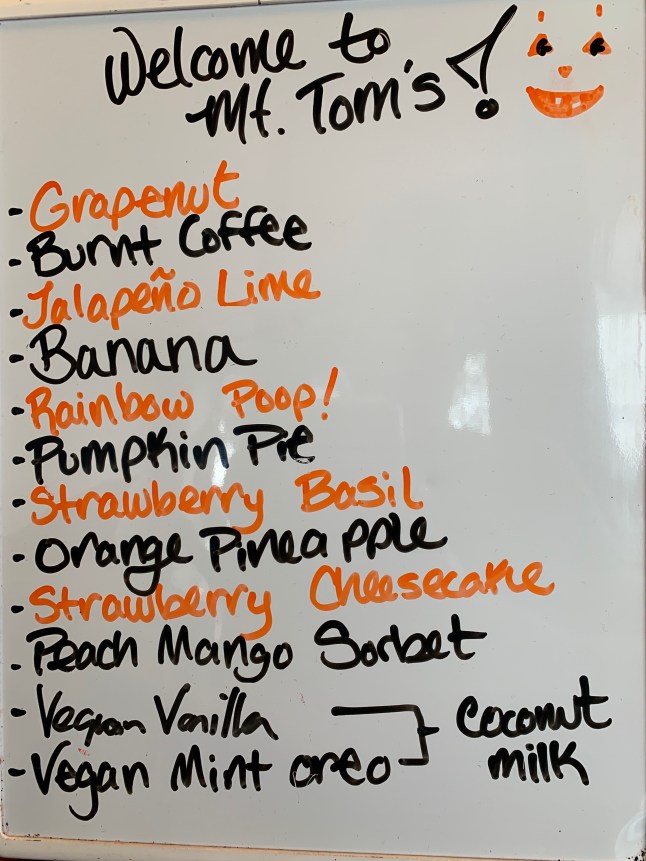 Welcome to
Mt. Tom's!
- Grapenut
- Burnt Coffee
- Jalapeño Lime
- Banana
- Rainbow Poop!
- Pumpkin Pie
- Strawberry Basil
- Orange Pineapple
- Strawberry Cheesecake
- Peach Mango Sorbet
- Vegan Vanilla
- Vegan Mint oreo
Coconut
milk